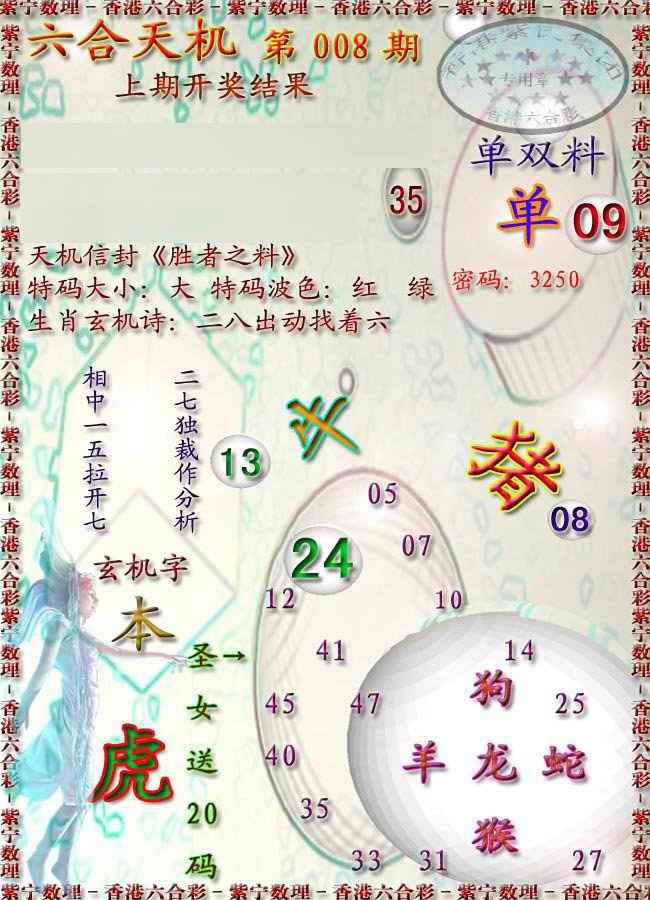 紫宁数理－香港六合彩－紫宁数理－香港六合彩－紫宁数理－香港六合彩－紫宁数理
六合天机 第 008 期
上期开奖结果
专用章
香港六合彩
单双料
35
单 09
天机信封《胜者之料》
特码大小：大 特码波色：红 绿
密码：3250
生肖玄机诗：二八出动找着六
相中一五拉开七
二七独裁作分析
13
猪
08
05
24
07
12
10
玄机字
本
圣女送20码
→
41
14
狗
45
47
25
虎
40
羊 龙 蛇
35
猴
33
31
27
紫宁数理－香港六合彩－紫宁数理－香港六合彩－紫宁数理－香港六合彩－紫宁数理